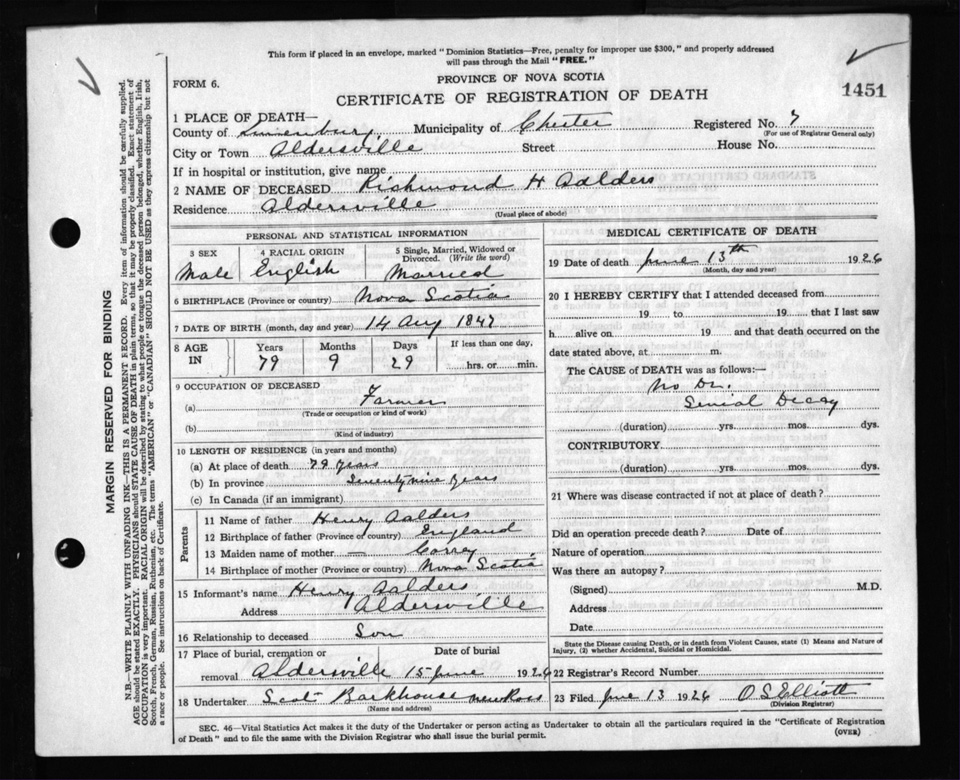 This form if placed in an envelope, marked "Dominion Statistics—Free, penalty for improper use $300," and properly addressed
will pass through the Mail "FREE."
FORM 6.
PROVINCE OF NOVA SCOTIA
CERTIFICATE OF REGISTRATION OF DEATH
1451
1 PLACE OF DEATH—
County of Lunenburg Municipality of Chester Registered No. 7
(For use of Registrar General only)
City or Town Aldersville Street House No.
If in hospital or institution, give name
2 NAME OF DECEASED Richmond H Aalders
Residence Aldersville
(Usual place of abode)
PERSONAL AND STATISTICAL INFORMATION
3 SEX 4 RACIAL ORIGIN 5 Single, Married, Widowed or
Divorced. (Write the word)
Male English Married
6 BIRTHPLACE (Province or country) Nova Scotia
7 DATE OF BIRTH (month, day and year) 14 Aug 1847
8 AGE IN Years Months Days If less than one day,
79 9 29 hrs. or min.
9 OCCUPATION OF DECEASED
(a) Farmer
(Trade or occupation or kind of work)
(b)
(Kind of industry)
10 LENGTH OF RESIDENCE (in years and months)
(a) At place of death 79 years
(b) In province Seventy nine years
(c) In Canada (if an immigrant)
Parents
11 Name of father Henry Aalders
12 Birthplace of father (Province or country) England
13 Maiden name of mother — Correy
14 Birthplace of mother (Province or country) Nova Scotia
15 Informant's name Henry Aalders
Address Aldersville
16 Relationship to deceased Son
17 Place of burial, cremation or Date of burial
removal Aldersville 15 June 1926
18 Undertaker Scott Barkhouse New Ross
(Name and address)
MEDICAL CERTIFICATE OF DEATH
19 Date of death June 13th 1926
(Month, day and year)
20 I HEREBY CERTIFY that I attended deceased from
19 to 19 that I last saw
h alive on 19 and that death occurred on the
date stated above, at m.
The CAUSE of DEATH was as follows:—
No Dr.
Senial Decay
(duration) yrs. mos. dys.
CONTRIBUTORY
(duration) yrs. mos. dys.
21 Where was disease contracted if not at place of death?
Did an operation precede death? Date of
Nature of operation
Was there an autopsy?
(Signed) M.D.
Address
Date
State the Disease causing Death, or in death from Violent Causes, state (1) Means and Nature of
Injury, (2) whether Accidental, Suicidal or Homicidal.
22 Registrar's Record Number
23 Filed June 13 1926 O. S. Elliott
(Division Registrar)
SEC. 46—Vital Statistics Act makes it the duty of the Undertaker or person acting as Undertaker to obtain all the particulars required in the "Certificate of Registration
of Death" and to file the same with the Division Registrar who shall issue the burial permit.
(OVER)
MARGIN RESERVED FOR BINDING
N.B.—WRITE PLAINLY WITH UNFADING INK—THIS IS A PERMANENT RECORD. Every item of information should be carefully supplied.
AGE should be stated EXACTLY. PHYSICIANS should STATE CAUSE OF DEATH in plain terms, so that it may be properly classified. Exact statement of
OCCUPATION is very important. RACIAL ORIGIN will be described by stating to what people or tongue the deceased person belonged, whether English, Irish,
Scotch, French, German, Russian, Ruthenian, etc. The terms "AMERICAN" or "CANADIAN" SHOULD NOT BE USED as they express citizenship but not
a race or people. See instructions on back of Certificate.